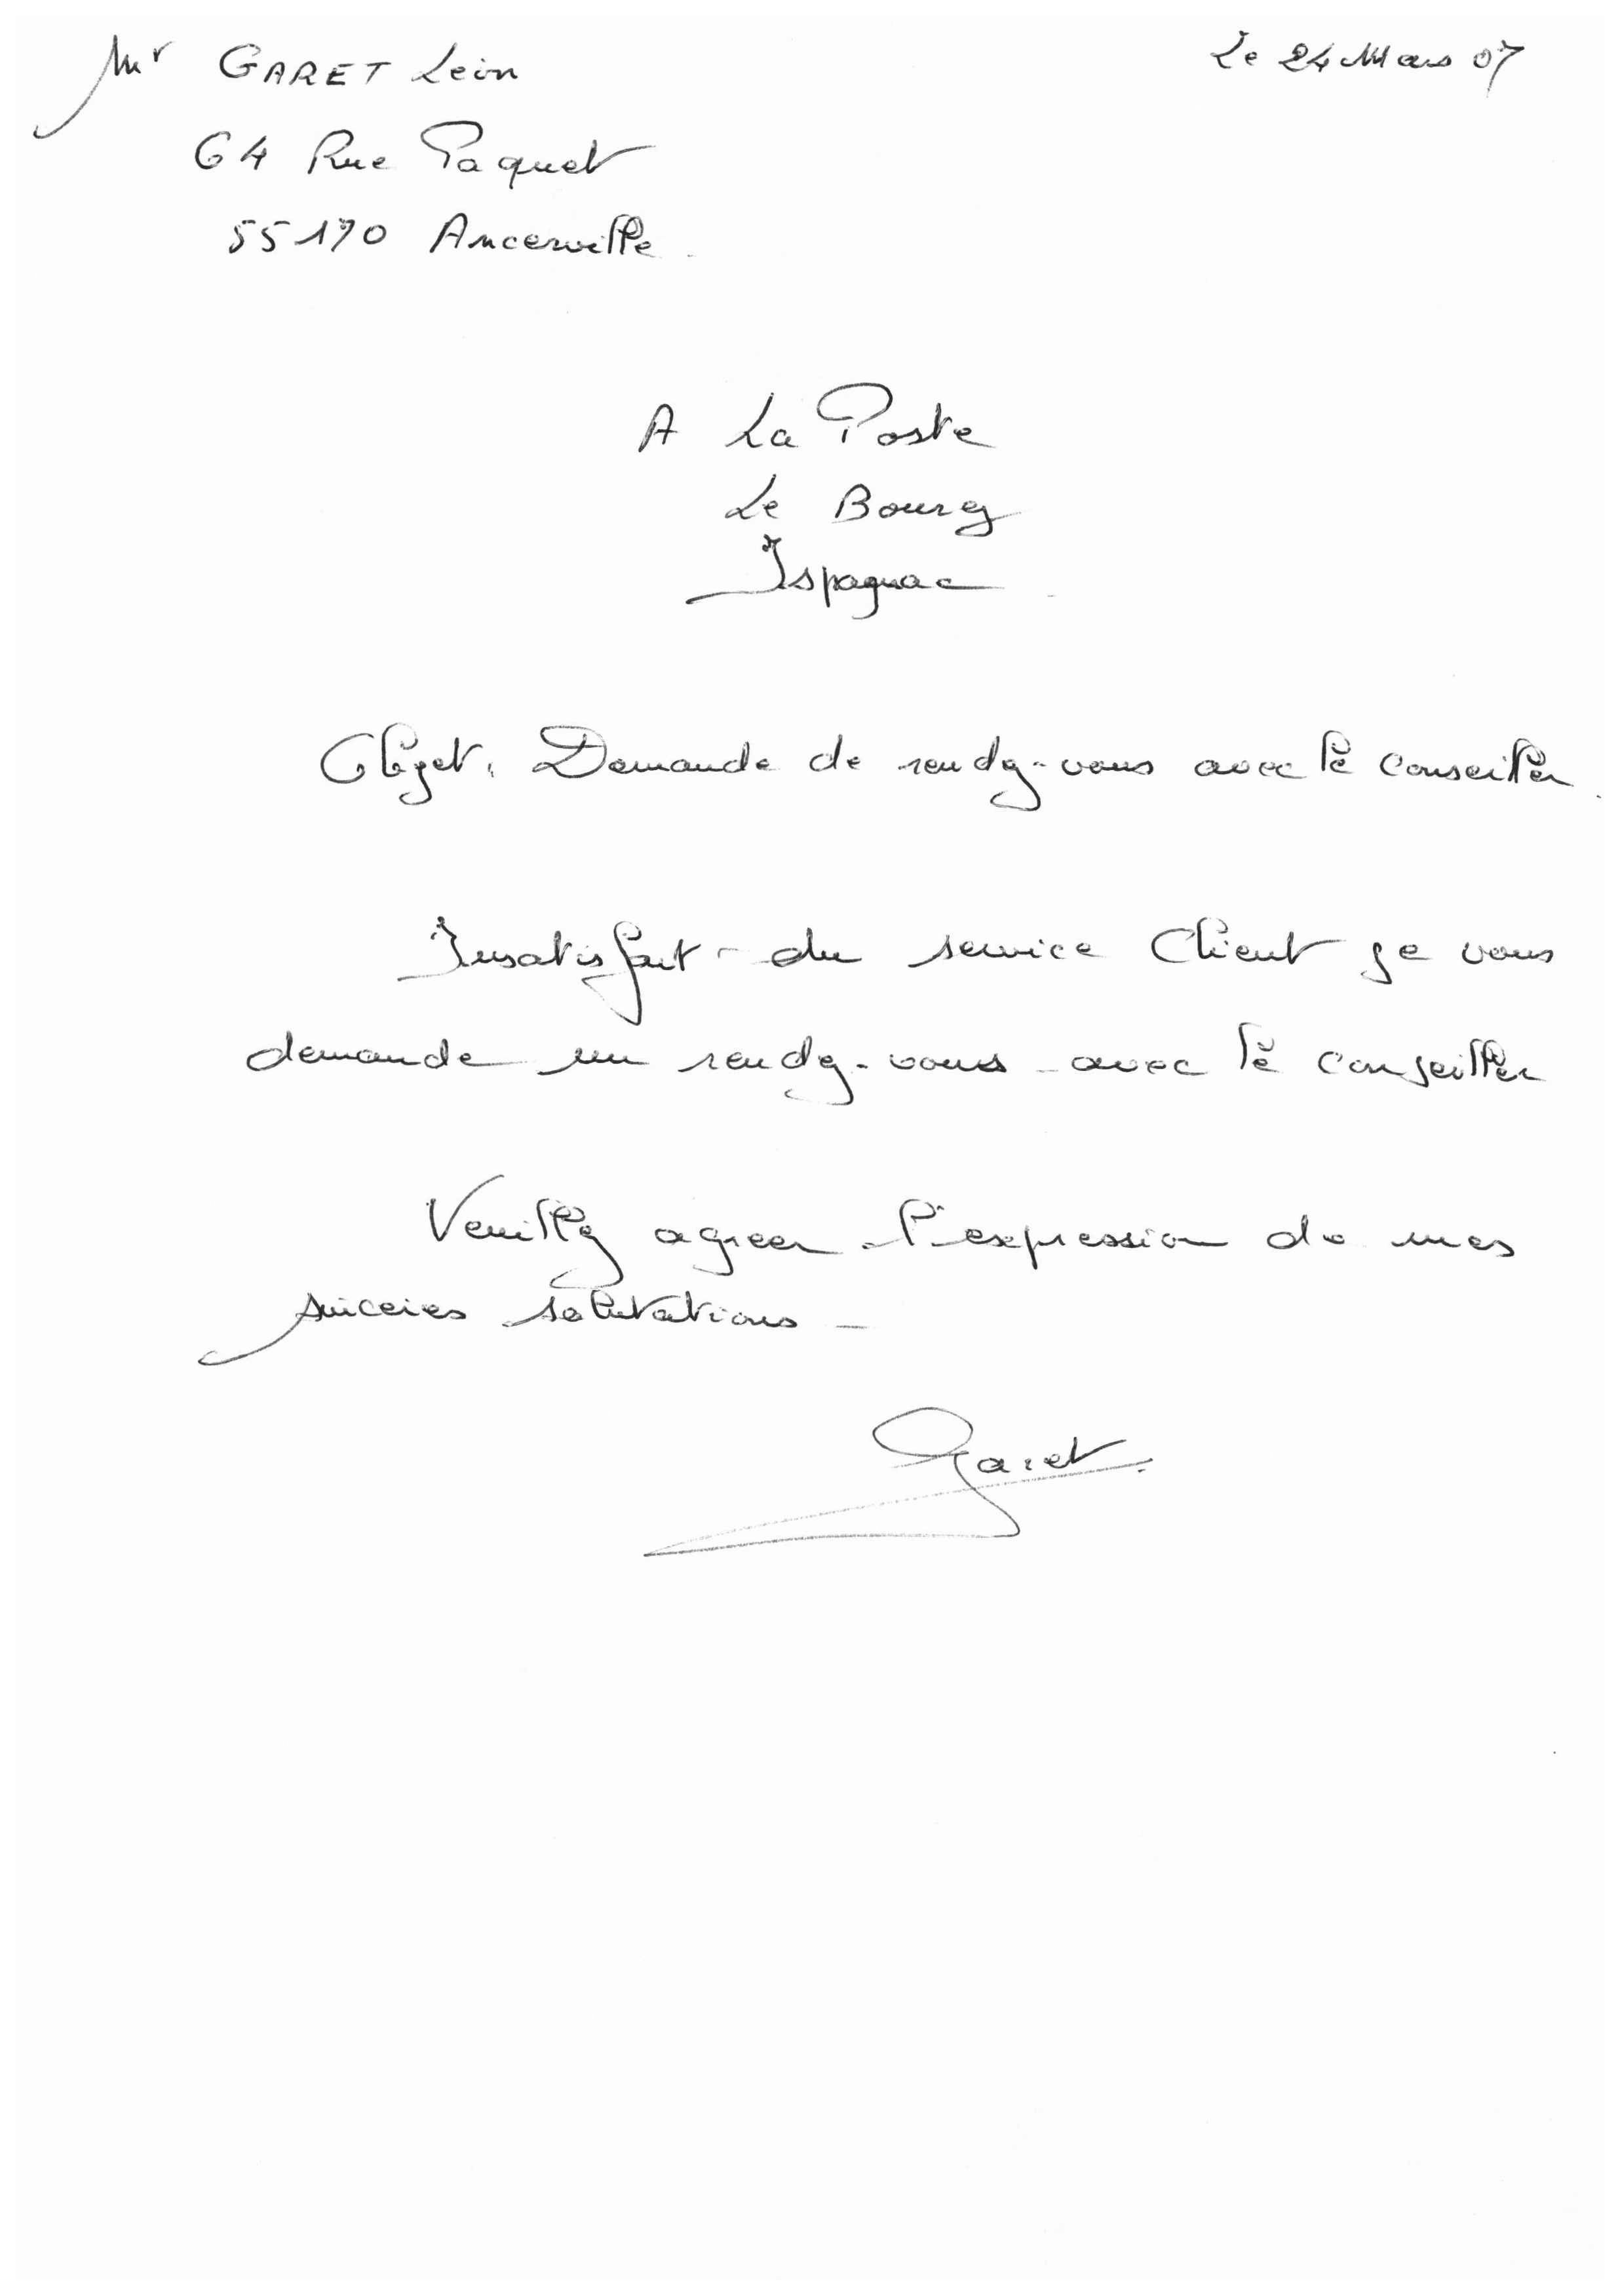 Mr GARET Léon
Le 24 Mars 07
64 Rue Paquet
55170 Ancerville
A La Poste
Le Bourg
Ispagnac
Objet : Demande de rendez-vous avec le conseiller.
Insatisfait du service Client je vous
demande un rendez-vous avec le conseiller
Veuillez agreer l'expression de mes
sinceres salutations -
Garet